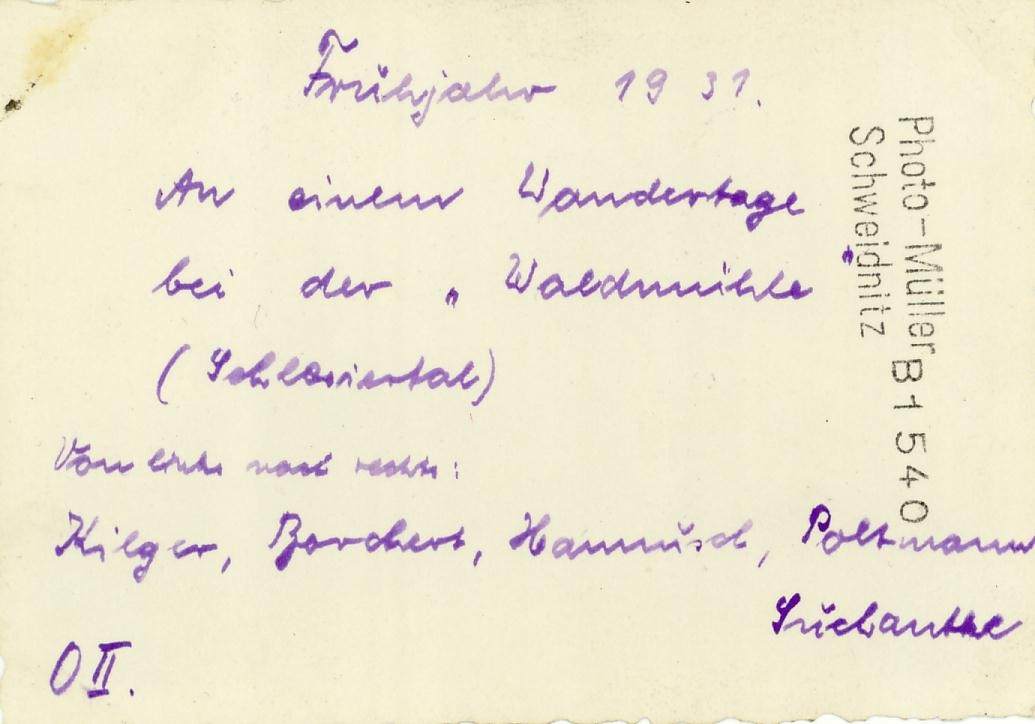 Frühjahr 1931.
An einem Wandertage
bei der „Waldmühle"
(Schlesiertal)
Von links nach rechts:
Kilger, Borchert, Hannusch, Poltmann
Suchantke
O II.
Photo-Müller B1540
Schweidnitz